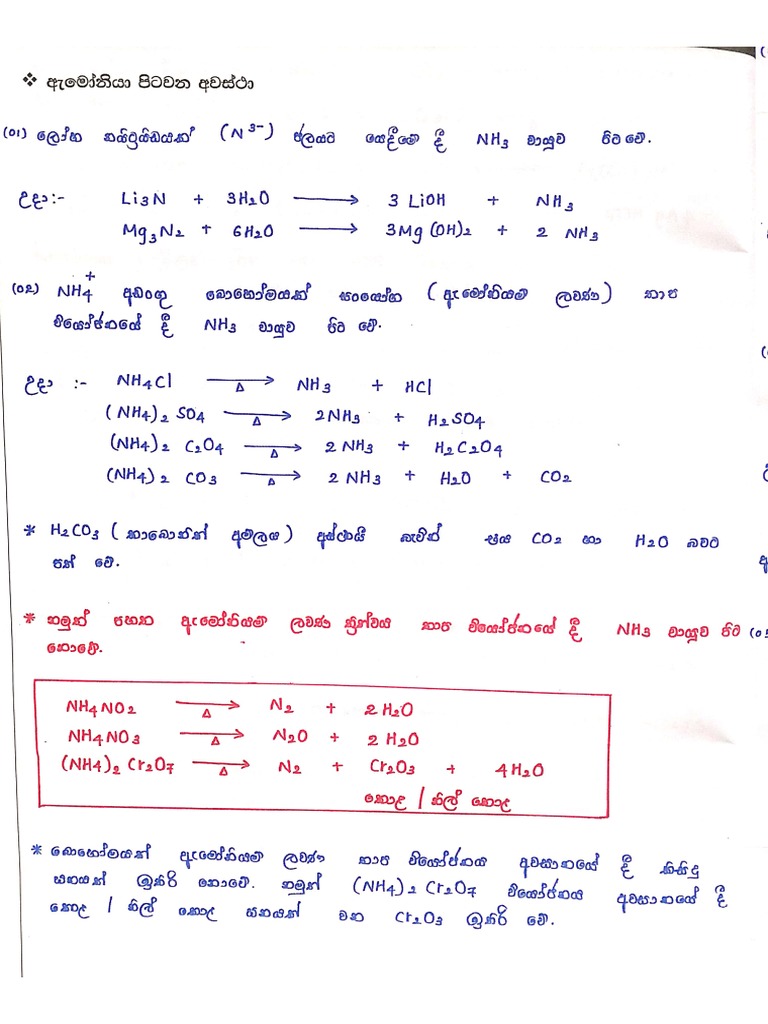 ❖ ඇමෝනියා පිටවන අවස්ථා
(01) ලෝහ නයිට්‍රයිඩයක් (N³⁻) ජලයට යෙදීමේ දී NH₃ වායුව පිට වේ.
උදා:- Li₃N + 3H₂O ⟶ 3 LiOH + NH₃
Mg₃N₂ + 6H₂O ⟶ 3Mg(OH)₂ + 2 NH₃
(02) NH₄⁺ අඩංගු බොහෝමයක් සංයෝග (ඇමෝනියම් ලවණ) තාප
වියෝජනයේ දී NH₃ වායුව පිට වේ.
උදා :- NH₄Cl ⟶ Δ NH₃ + HCl
(NH₄)₂ SO₄ ⟶ Δ 2NH₃ + H₂SO₄
(NH₄)₂ C₂O₄ ⟶ Δ 2 NH₃ + H₂C₂O₄
(NH₄)₂ CO₃ ⟶ Δ 2 NH₃ + H₂O + CO₂
* H₂CO₃ (කාබොනික් අම්ලය) අස්ථායී බැවින් එය CO₂ හා H₂O බවට
පත් වේ.
* නමුත් පහත ඇමෝනියම් ලවණ ත්‍රිත්වය තාප වියෝජනයේ දී NH₃ වායුව පිට
නොවේ.
NH₄NO₂ ⟶ Δ N₂ + 2H₂O
NH₄NO₃ ⟶ Δ N₂O + 2 H₂O
(NH₄)₂ Cr₂O₇ ⟶ Δ N₂ + Cr₂O₃ + 4H₂O
කොළ / නිල් කොළ
* බොහෝමයක් ඇමෝනියම් ලවණ තාප වියෝජනය අවසානයේ දී කිසිදු
ඝනයක් ඉතිරි නොවේ. නමුත් (NH₄)₂ Cr₂O₇ වියෝජනය අවසානයේ දී
කොළ / නිල් කොළ ඝනයක් වන Cr₂O₃ ඉතිරි වේ.